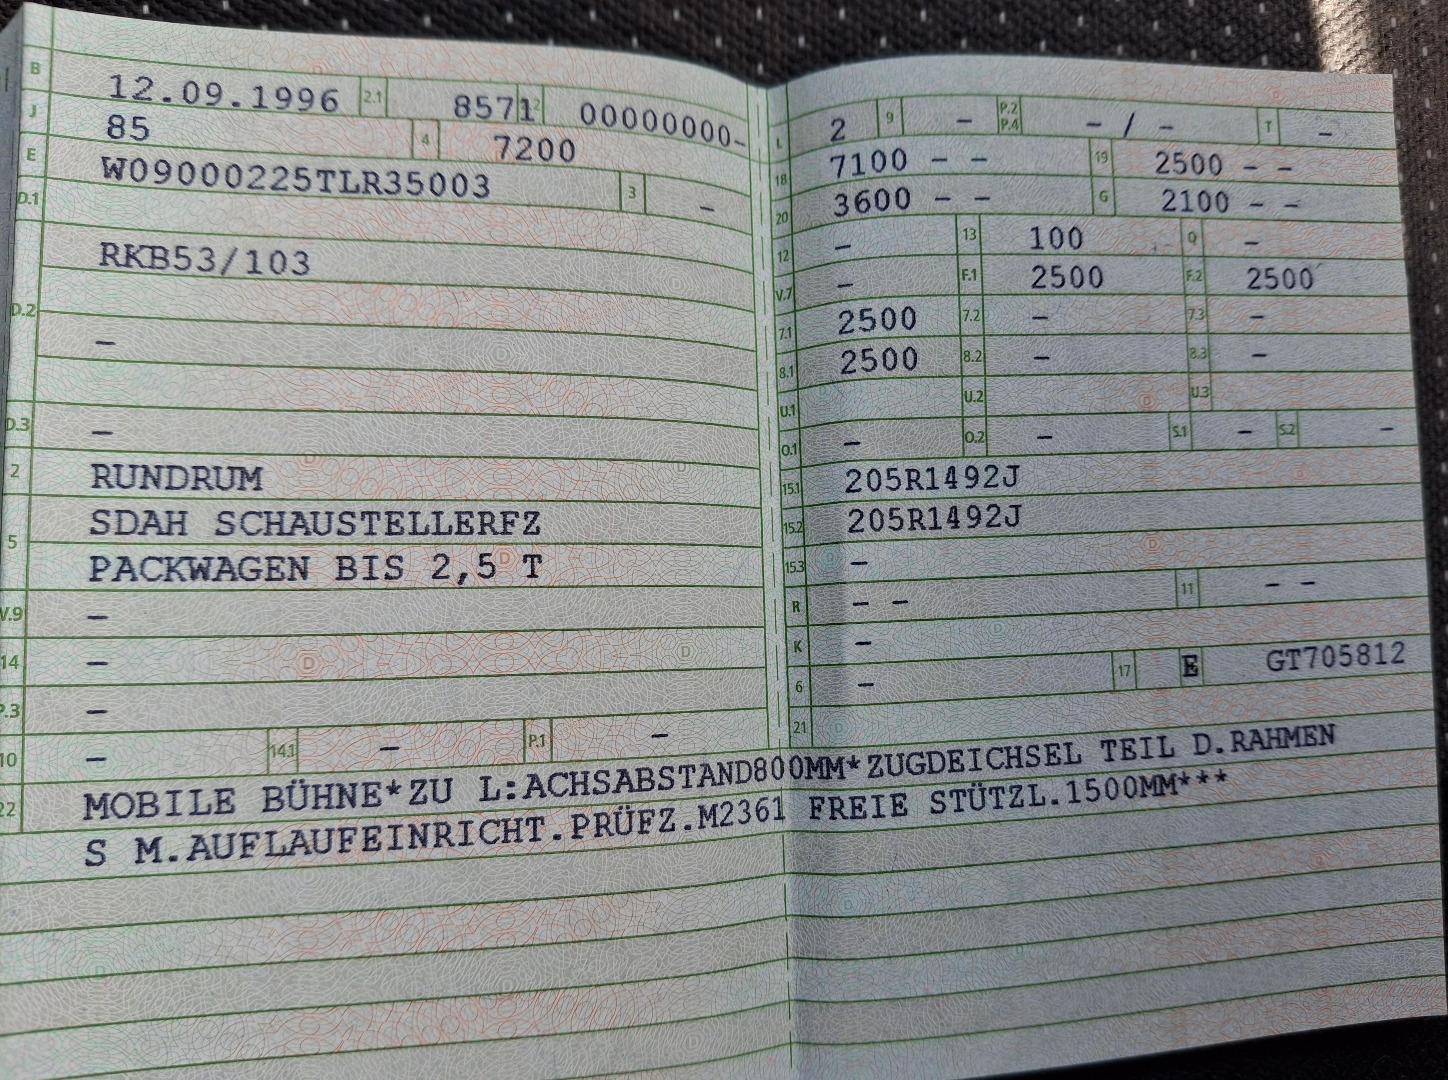 B 12.09.1996 2.1 8571 2 00000000-
J 85 4 7200
E W09000225TLR35003 3 –
D.1
RKB53/103
D.2
–
D.3 –
2 RUNDRUM
5 SDAH SCHAUSTELLERFZ
PACKWAGEN BIS 2,5 T
V.9 –
14 –
P.3 –
10 – 14.1 – P.1 –
L 2 9 – P.2 P.4 – / – T –
18 7100 – – 19 2500 – –
20 3600 – – G 2100 – –
12 – 13 100 Q –
V.7 – F.1 2500 F.2 2500
7.1 2500 7.2 – 7.3 –
8.1 2500 8.2 – 8.3 –
U.1 U.2 U.3
O.1 – O.2 – S.1 – S.2 –
15.1 205R1492J
15.2 205R1492J
15.3 –
R – – 11 – –
K –
6 – 17 E GT705812
21
22 MOBILE BÜHNE*ZU L:ACHSABSTAND800MM*ZUGDEICHSEL TEIL D.RAHMEN
S M.AUFLAUFEINRICHT.PRÜFZ.M2361 FREIE STÜTZL.1500MM***